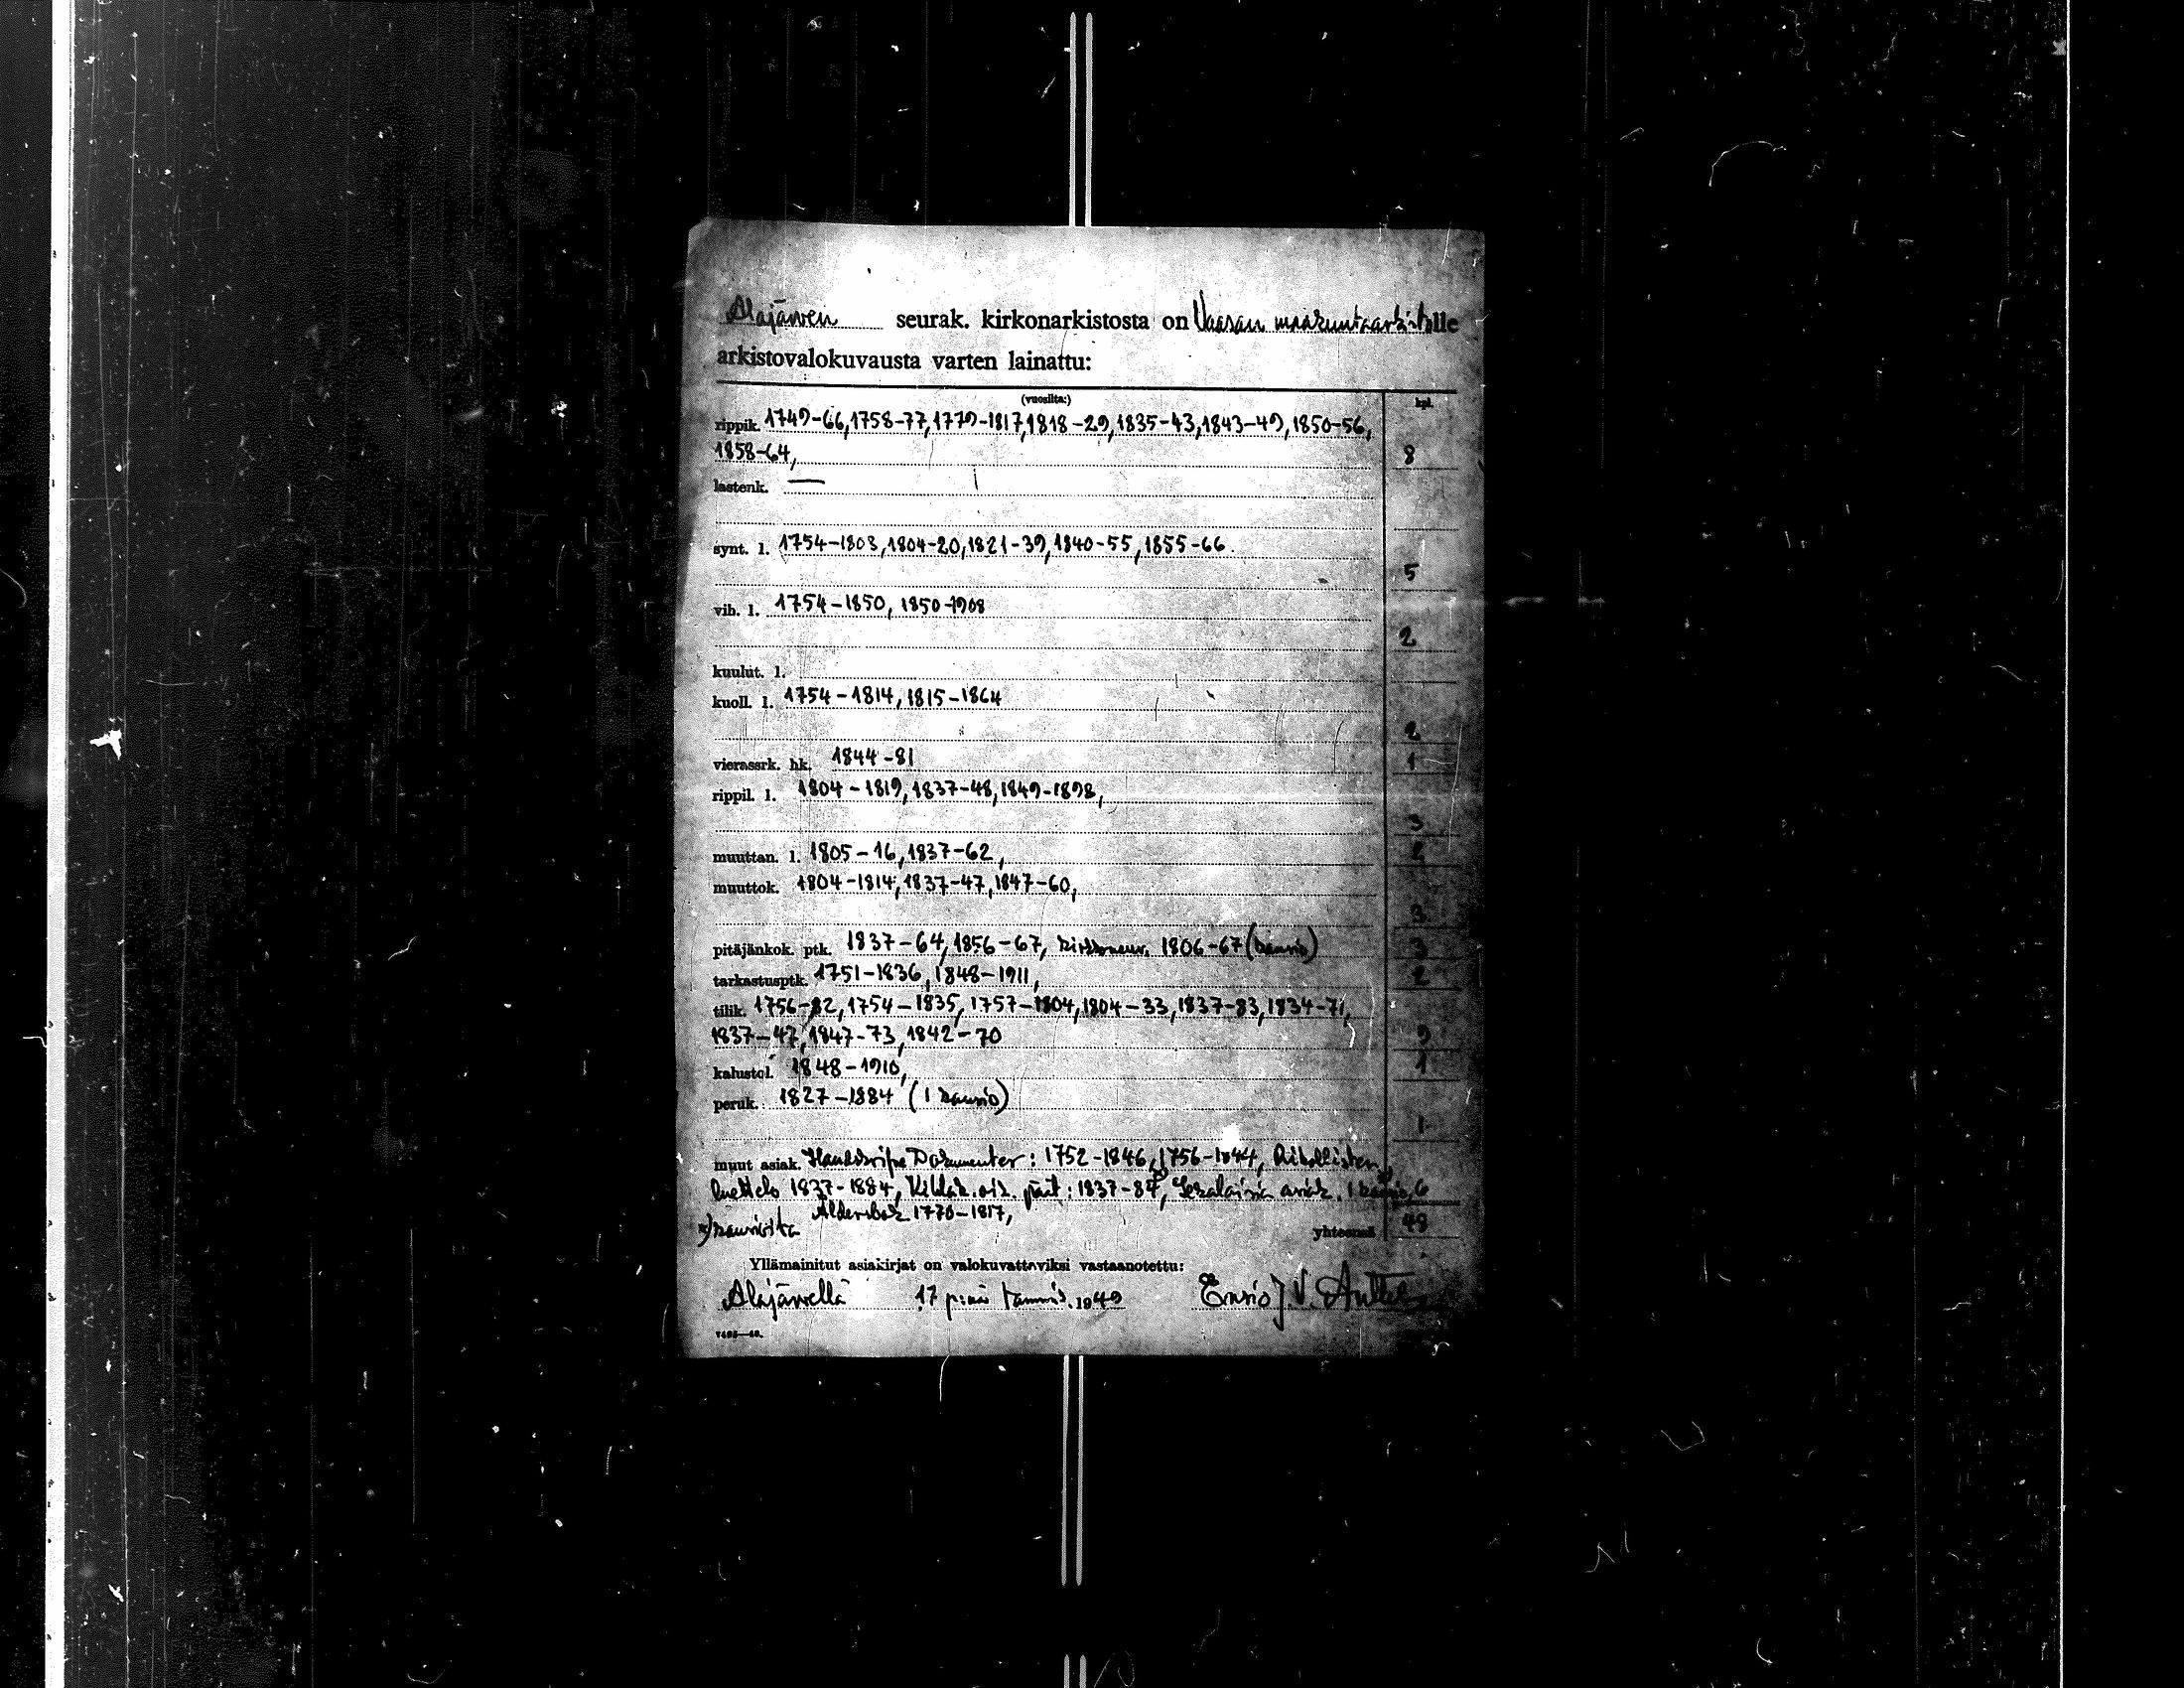 Alajärven seurak. kirkonarkistosta on Vaasan maakuntaarkistolle
arkistovalokuvausta varten lainattu:
(vuosilta:) kpl.
rippik. 1749-66, 1758-77, 1779-1817, 1818-29, 1835-43, 1843-49, 1850-56,
1858-64, 8
lastenk. —
synt. l. 1754-1803, 1804-20, 1821-39, 1840-55, 1855-66.
5
vih. l. 1754-1850, 1850-1908
2
kuulut. l.
kuoll. l. 1754-1814, 1815-1864
2
vierassrk. hk. 1844-81 1
rippil. l. 1804-1819, 1837-48, 1849-1898,
3
muuttan. l. 1805-16, 1837-62, 2
muuttok. 1804-1814, 1837-47, 1847-60,
3
pitäjänkok. ptk. 1837-64, 1856-67, 1806-67 (kansio) 3
tarkastusptk. 1751-1836, 1848-1911, 2
tilik. 1756-82, 1754-1835, 1757-1804, 1804-33, 1837-83, 1834-71,
1837-47, 1847-73, 1842-70 9
kalustol. 1848-1910, 1
peruk. 1827-1884 (1 kansio)
1
muut asiak. Dokumenter: 1752-1846, 1756-1844,
luettelo 1837-1884, 1837-84, Sekalaisia asiak. 1 kansio, 6
Aldersbok 1770-1817,
x) kansiota yhteensä 48
Yllämainitut asiakirjat on valokuvattaviksi vastaanotettu:
Alajärvellä 17 p:nä tammik. 1949 Ensio J. V.